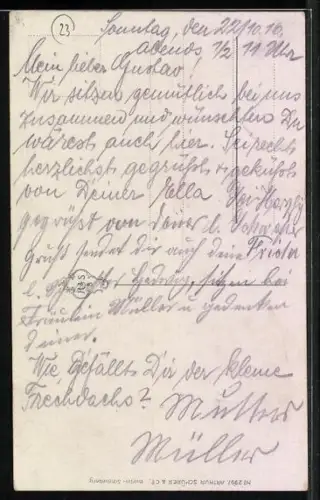 23
Sonntag, den 22/10.16.
abends 1/2 11 Uhr
Mein lieber Gustav!
Wir sitzen gemütlich bei uns
zusammen und wünschten Du
wärest auch hier. Sei rechts
herzlichst gegrüßt u. geküßt
von Deiner Ella Sei Herzlig
gegrüsst von deiner l. Schwester
gruß sendet dir auch deine Frieda
l. Hedwig, sitzen bei
Fräulein Müller u. gedenken
deiner.
Wie gefällt Dir der kleine
Frechdachs? Mutter
Müller